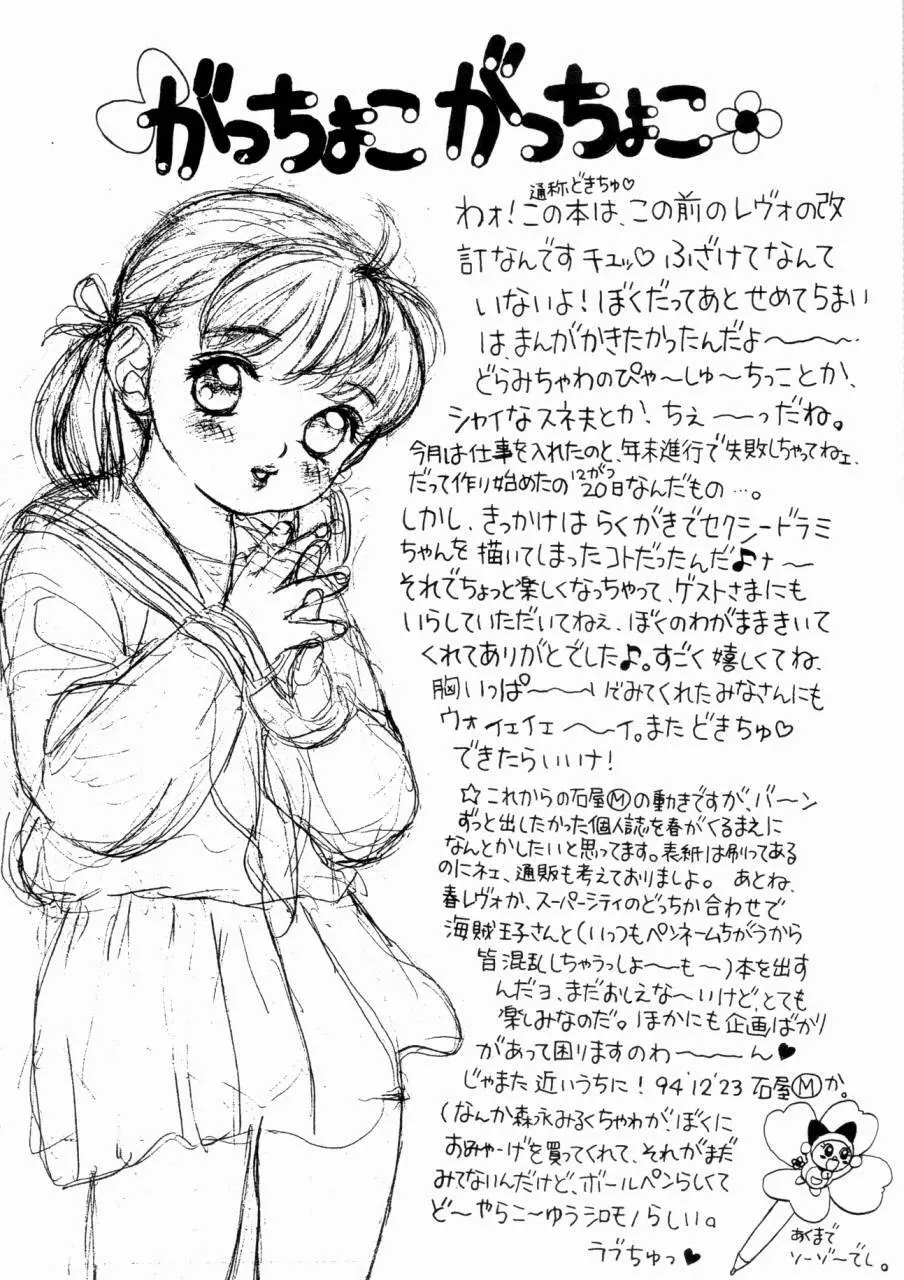 がっちょこ がっちょこ
通称どきちゅ♡
わォ!この本は、この前のレヴォの改
訂なんですチュッ♡ ふざけてなんて
いないよ!ぼくだってあとせめて5まい
は、まんがかきたかったんだよ〜〜〜
どらみちゃわのぴゃ〜しゅ〜ちっことか、
シャイなスネ夫とか、ちぇ〜〜っだね。
今月は仕事を入れたのと、年末進行で失敗しちゃってねェ、
だって作り始めたの12がつ20日なんだもの…。
しかし、きっかけはらくがきでセクシードラミ
ちゃんを描いてしまったコトだったんだ♪ナ〜
それでちょっと楽しくなっちゃって、ゲストさまにも
いらしていただいてねぇ、ぼくのわがままきいて
くれてありがとでした♪。すごく嬉しくてね、
胸いっぱ〜〜〜いでみてくれたみなさんにも
ウォィェイェ〜〜イ。またどきちゅ♡
できたらいいナ!
☆これからの石屋Ⓜの動きですが、バ〜ン
ずっと出したかった個人誌を春がくるまえに
なんとかしたいと思ってます。表紙は刷ってある
のにネェ、通販も考えておりましよ。 あとね、
春レヴォか、スーパーシティのどっちか合わせで
海賊王子さんと(いっつもペンネームちがうから
皆混乱しちゃうっしょ〜〜も〜)本を出す
んだョ、まだおしえな〜いけど、とても
楽しみなのだ。ほかにも企画ばかり
があって困りますのわ〜〜〜ん♥
じゃまた近いうちに!94'12'23 石屋Ⓜか。
(なんか森永みるくちゃわが、ぼくに
おみゃーげを買ってくれて、それがまだ
みてないんだけど、ボールペンらしくて
ど〜やらこ〜ゆうシロモノらしい。
ラブちゅっ♥
あくまで
ソーゾーでし。